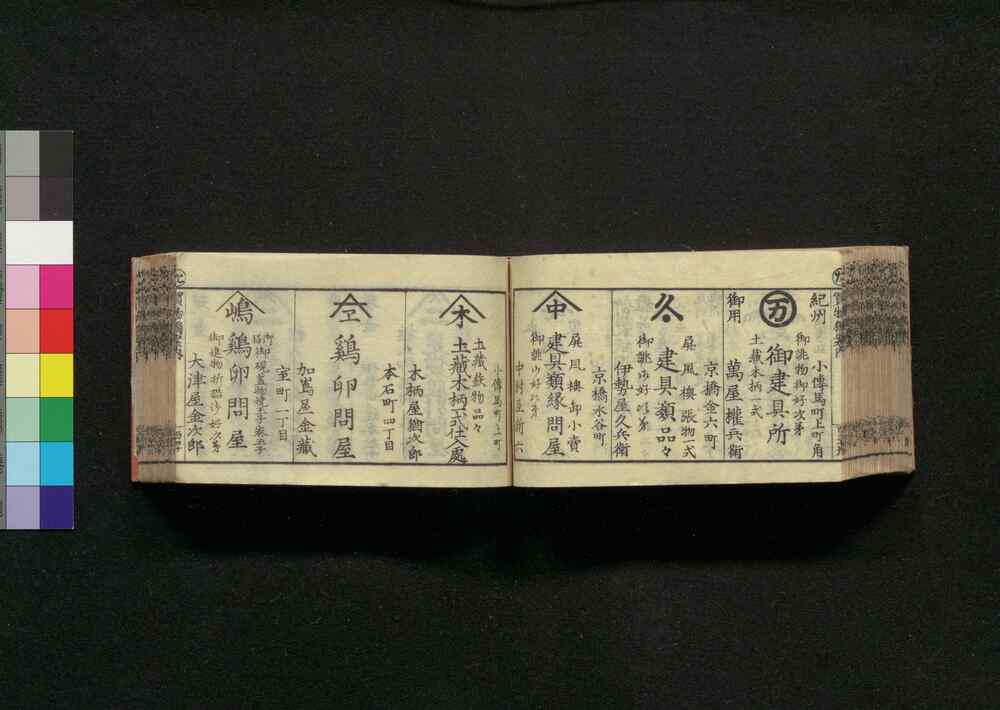 紀州
御用
万
小傳馬町上町角
御誂物御好次第
御建具所
土藏木柄一式
萬屋權兵衛
久
京橋金六町
屏風樓張物一式
建具類品々
御誂御好次第
伊勢屋久兵衛
中
京橋水谷町
屏風樓卸小賣
建具類縁問屋
御誂御好次第
中村屋新六
木
小傳馬町上町
土藏鉄物品々
土藏木柄六式仕入處
木柄屋
本石町四丁目
鷄卵問屋
加嶌屋金藏
嶋
室町一丁目
鷄卵問屋
御進物折詰御好次第
大津屋金次郎